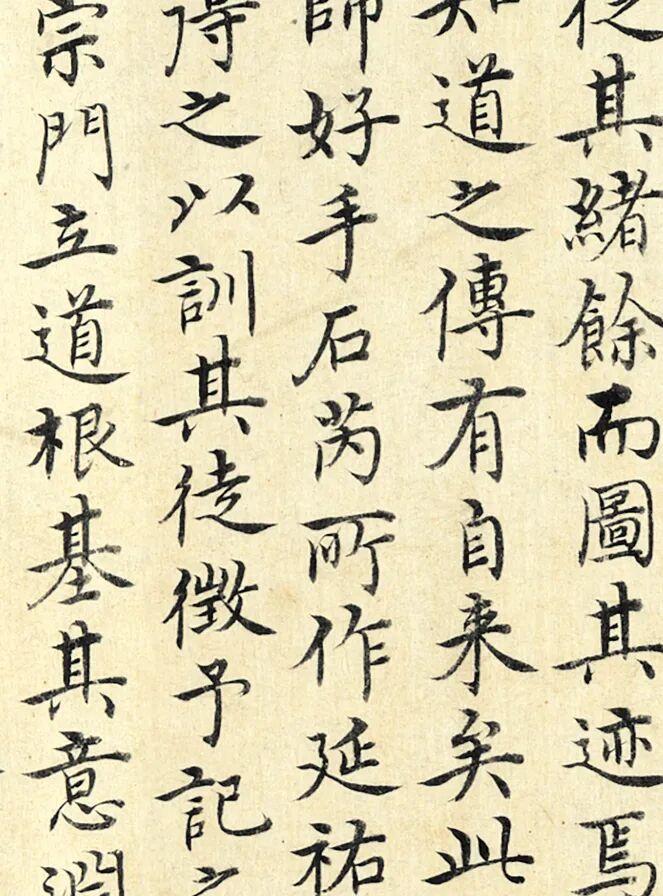 從其緒餘而圖其迹焉
知道之傳有自来矣此
師好手石芮所作延祐
得之以訓其徒徵予記之
宗門立道根基其意淵